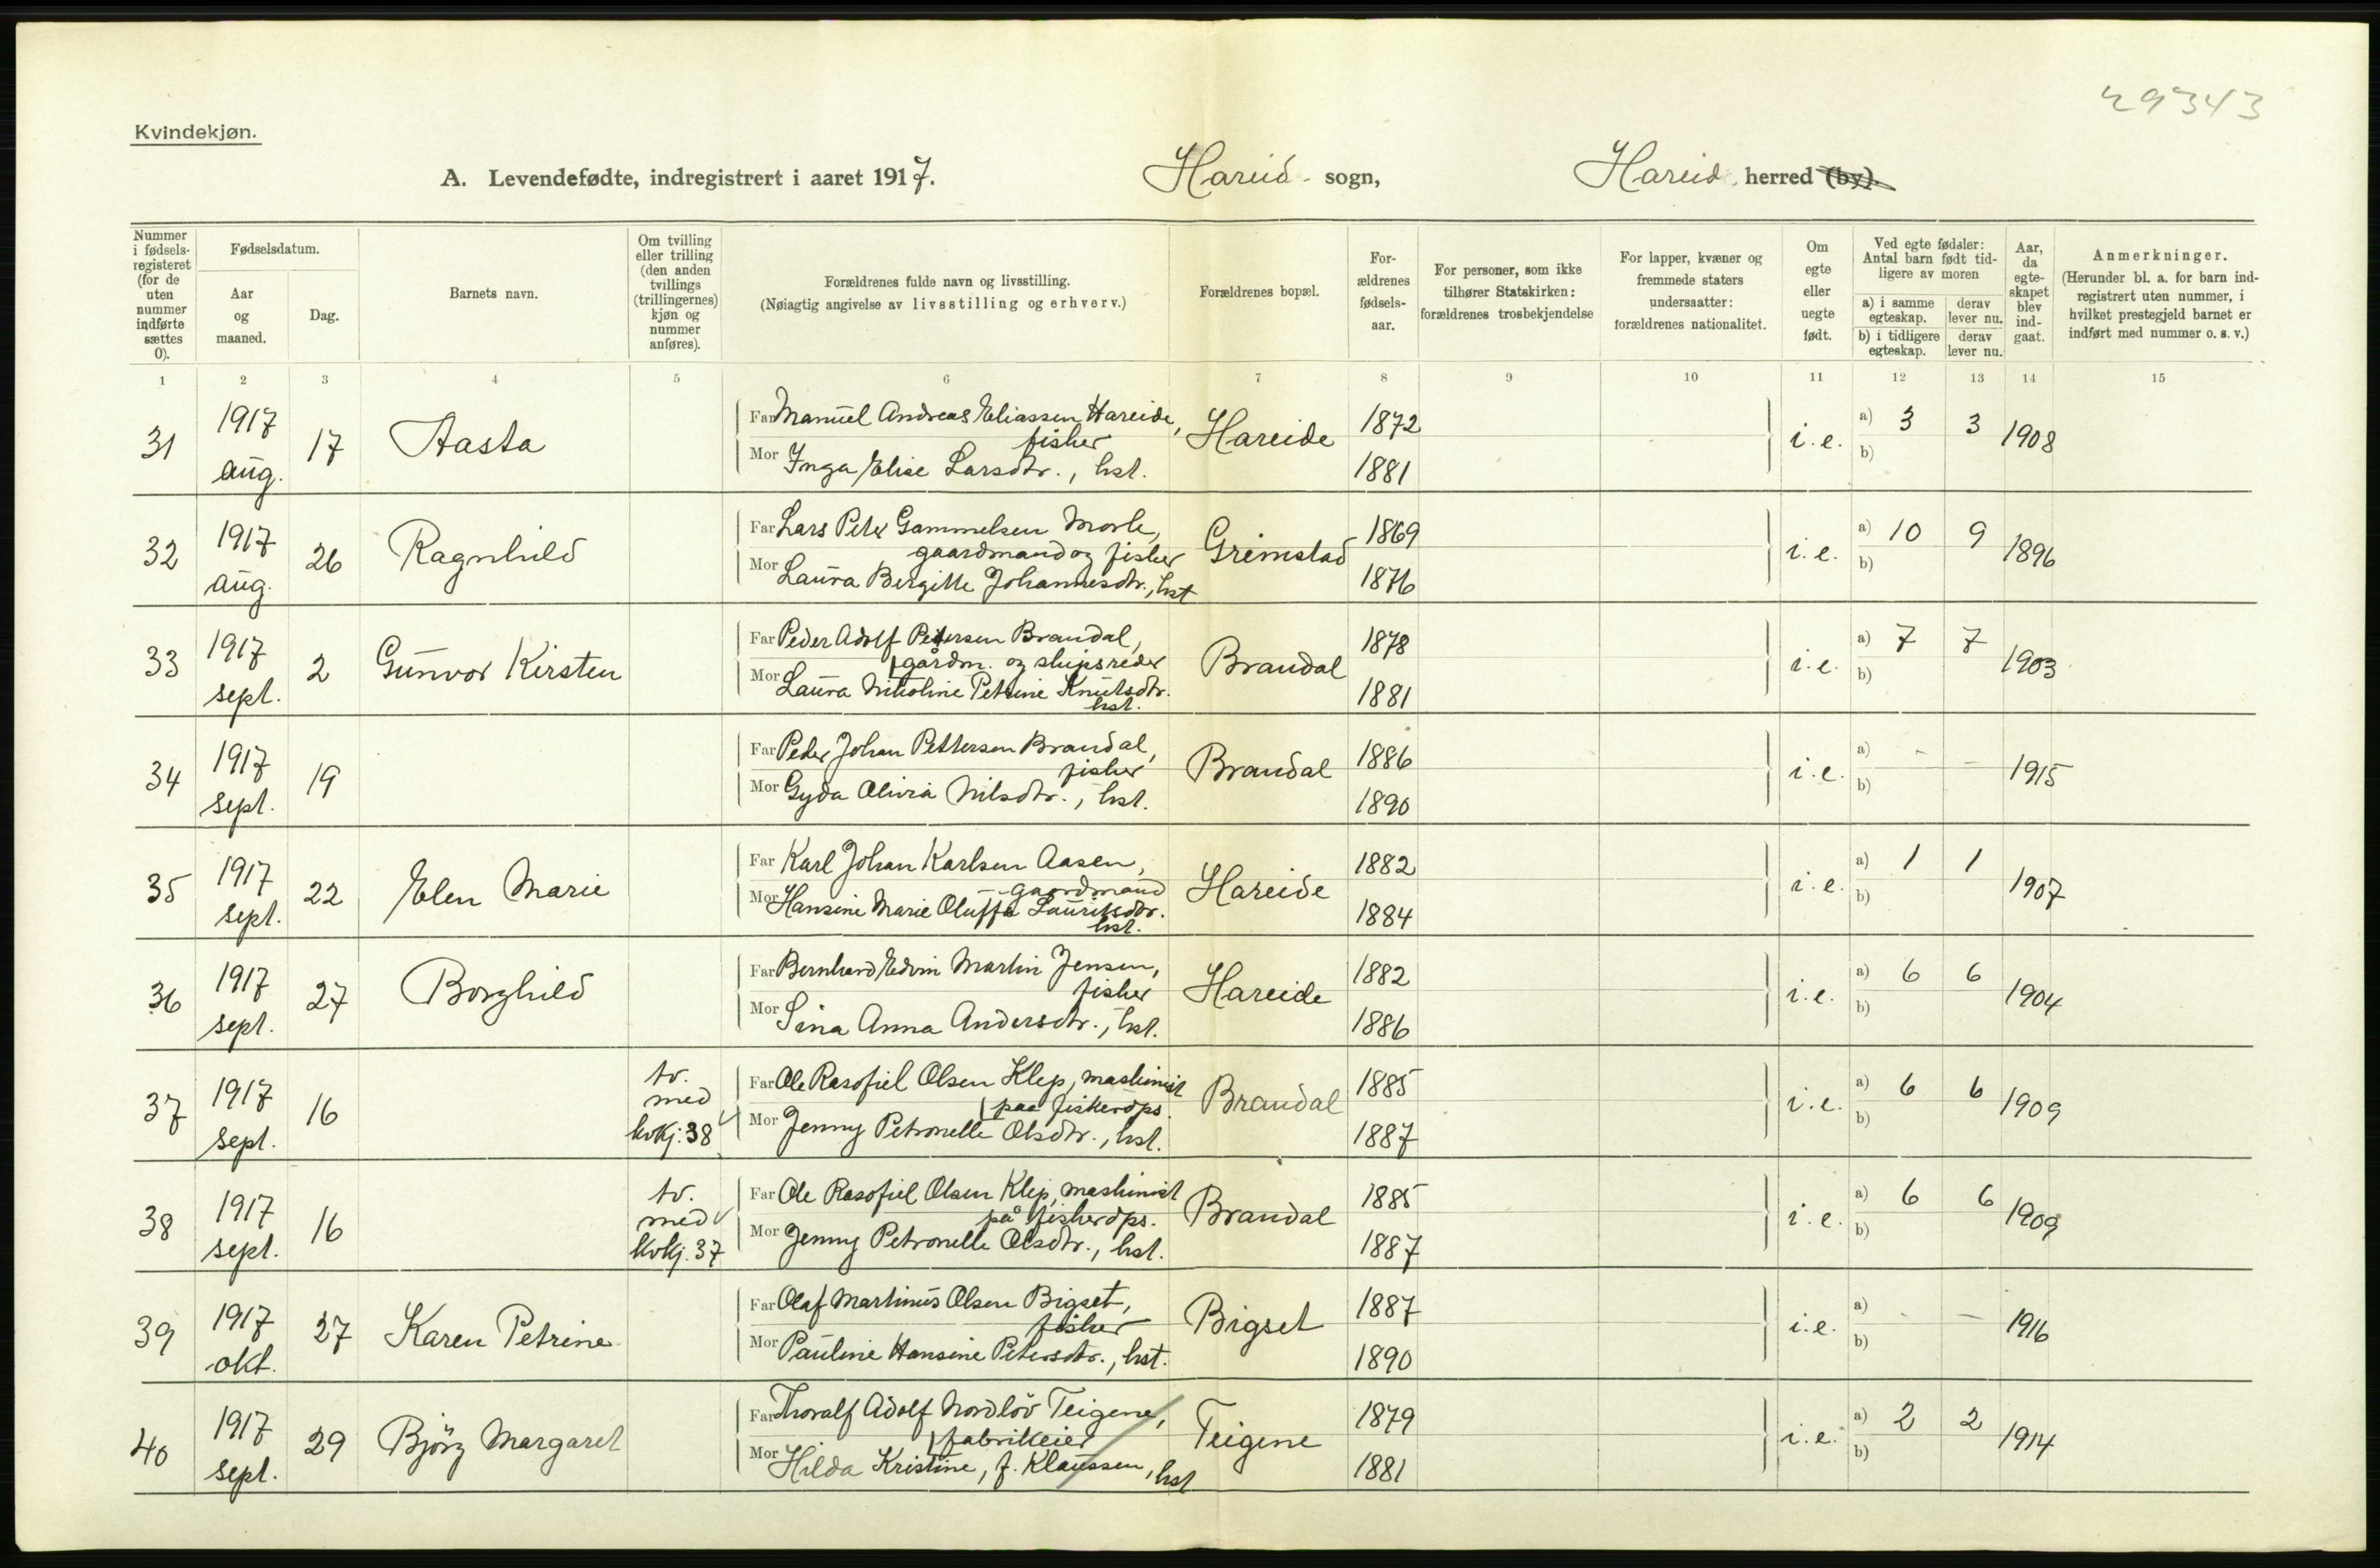 29343
Kvindekjøn.
A. Levendefødte, indregistrert i aaret 1917. Hareid sogn, Hareid herred (by).
Nummer i fødselsregisteret (for de uten nummer indførte sættes 0).
Fødselsdatum.
Aar og maaned.
Dag.
Barnets navn.
Om tvilling eller trilling (den anden tvillings (trillingernes) kjøn og nummer anføres).
Forældrenes fulde navn og livsstilling.
(Nøiagtig angivelse av livsstilling og erhverv.)
Forældrenes bopæl.
Forældrenes fødselsaar.
For personer, som ikke tilhører Statskirken: forældrenes trosbekjendelse
For lapper, kvæner og fremmede staters undersaatter: forældrenes nationalitet.
Om egte eller uegte født.
Ved egte fødsler: Antal barn født tidligere av moren
a) i samme egteskap. derav lever nu.
b) i tidligere egteskap. derav lever nu.
Aar, da egteskapet blev indgaat.
Anmerkninger.
(Herunder bl. a. for barn indregistrert uten nummer, i hvilket prestegjeld barnet er indført med nummer o. s. v.)
1 2 3 4 5 6 7 8 9 10 11 12 13 14 15
31 1917 aug. 17 Aasta
Far Manuel Andreas Eliassen Hareide, fisker
Mor Inga Elise Larsdtr., hst.
Hareide 1872 1881 i.e. a) 3 3 b) 1908
32 1917 aug. 26 Ragnhild
Far Lars Peter Gammelsen Mork, gaardmand og fisker
Mor Laura Bergitte Johannesdtr., hst
Grimstad 1869 1876 i.e. a) 10 9 b) 1896
33 1917 sept. 2 Gunvor Kirsten
Far Peder Adolf Petersen Brandal, gårdm. og skipsreder
Mor Laura Nikoline Petrine Knutsdtr. hst.
Brandal 1878 1881 i.e. a) 7 7 b) 1903
34 1917 sept. 19
Far Peder Johan Pettersen Brandal, fisker
Mor Gyda Olivia Nilsdtr., hst.
Brandal 1886 1890 i.e. a) - - b) 1915
35 1917 sept. 22 Elen Marie
Far Karl Johan Karlsen Aasen, gaardmand
Mor Hansine Marie Oluffa Lauritsdtr. hst.
Hareide 1882 1884 i.e. a) 1 1 b) 1907
36 1917 sept. 27 Borghild
Far Bernhard Edvin Martin Jensen, fisker
Mor Sina Anna Andersdtr., hst.
Hareide 1882 1886 i.e. a) 6 6 b) 1904
37 1917 sept. 16 tv. med kvkj. 38
Far Ole Rasofiel Olsen Klep, maskinist paa fiskerdps.
Mor Jenny Petronelle Olsdtr., hst.
Brandal 1885 1887 i.e. a) 6 6 b) 1909
38 1917 sept. 16 tv. med kvkj. 37
Far Ole Rasofiel Olsen Klep, maskinist på fiskerdps.
Mor Jenny Petronelle Olsdtr., hst.
Brandal 1885 1887 i.e. a) 6 6 b) 1909
39 1917 okt. 27 Karen Petrine
Far Olaf Martinus Olsen Bigset, fisker
Mor Pauline Hansine Petersdtr., hst.
Bigset 1887 1890 i.e. a) - - b) 1916
40 1917 sept. 29 Bjørg Margaret
Far Thoralf Adolf Nordløv Teigene, fabrikeier
Mor Hilda Kristine, f. Klaussen, hst
Teigene 1879 1881 i.e. a) 2 2 b) 1914